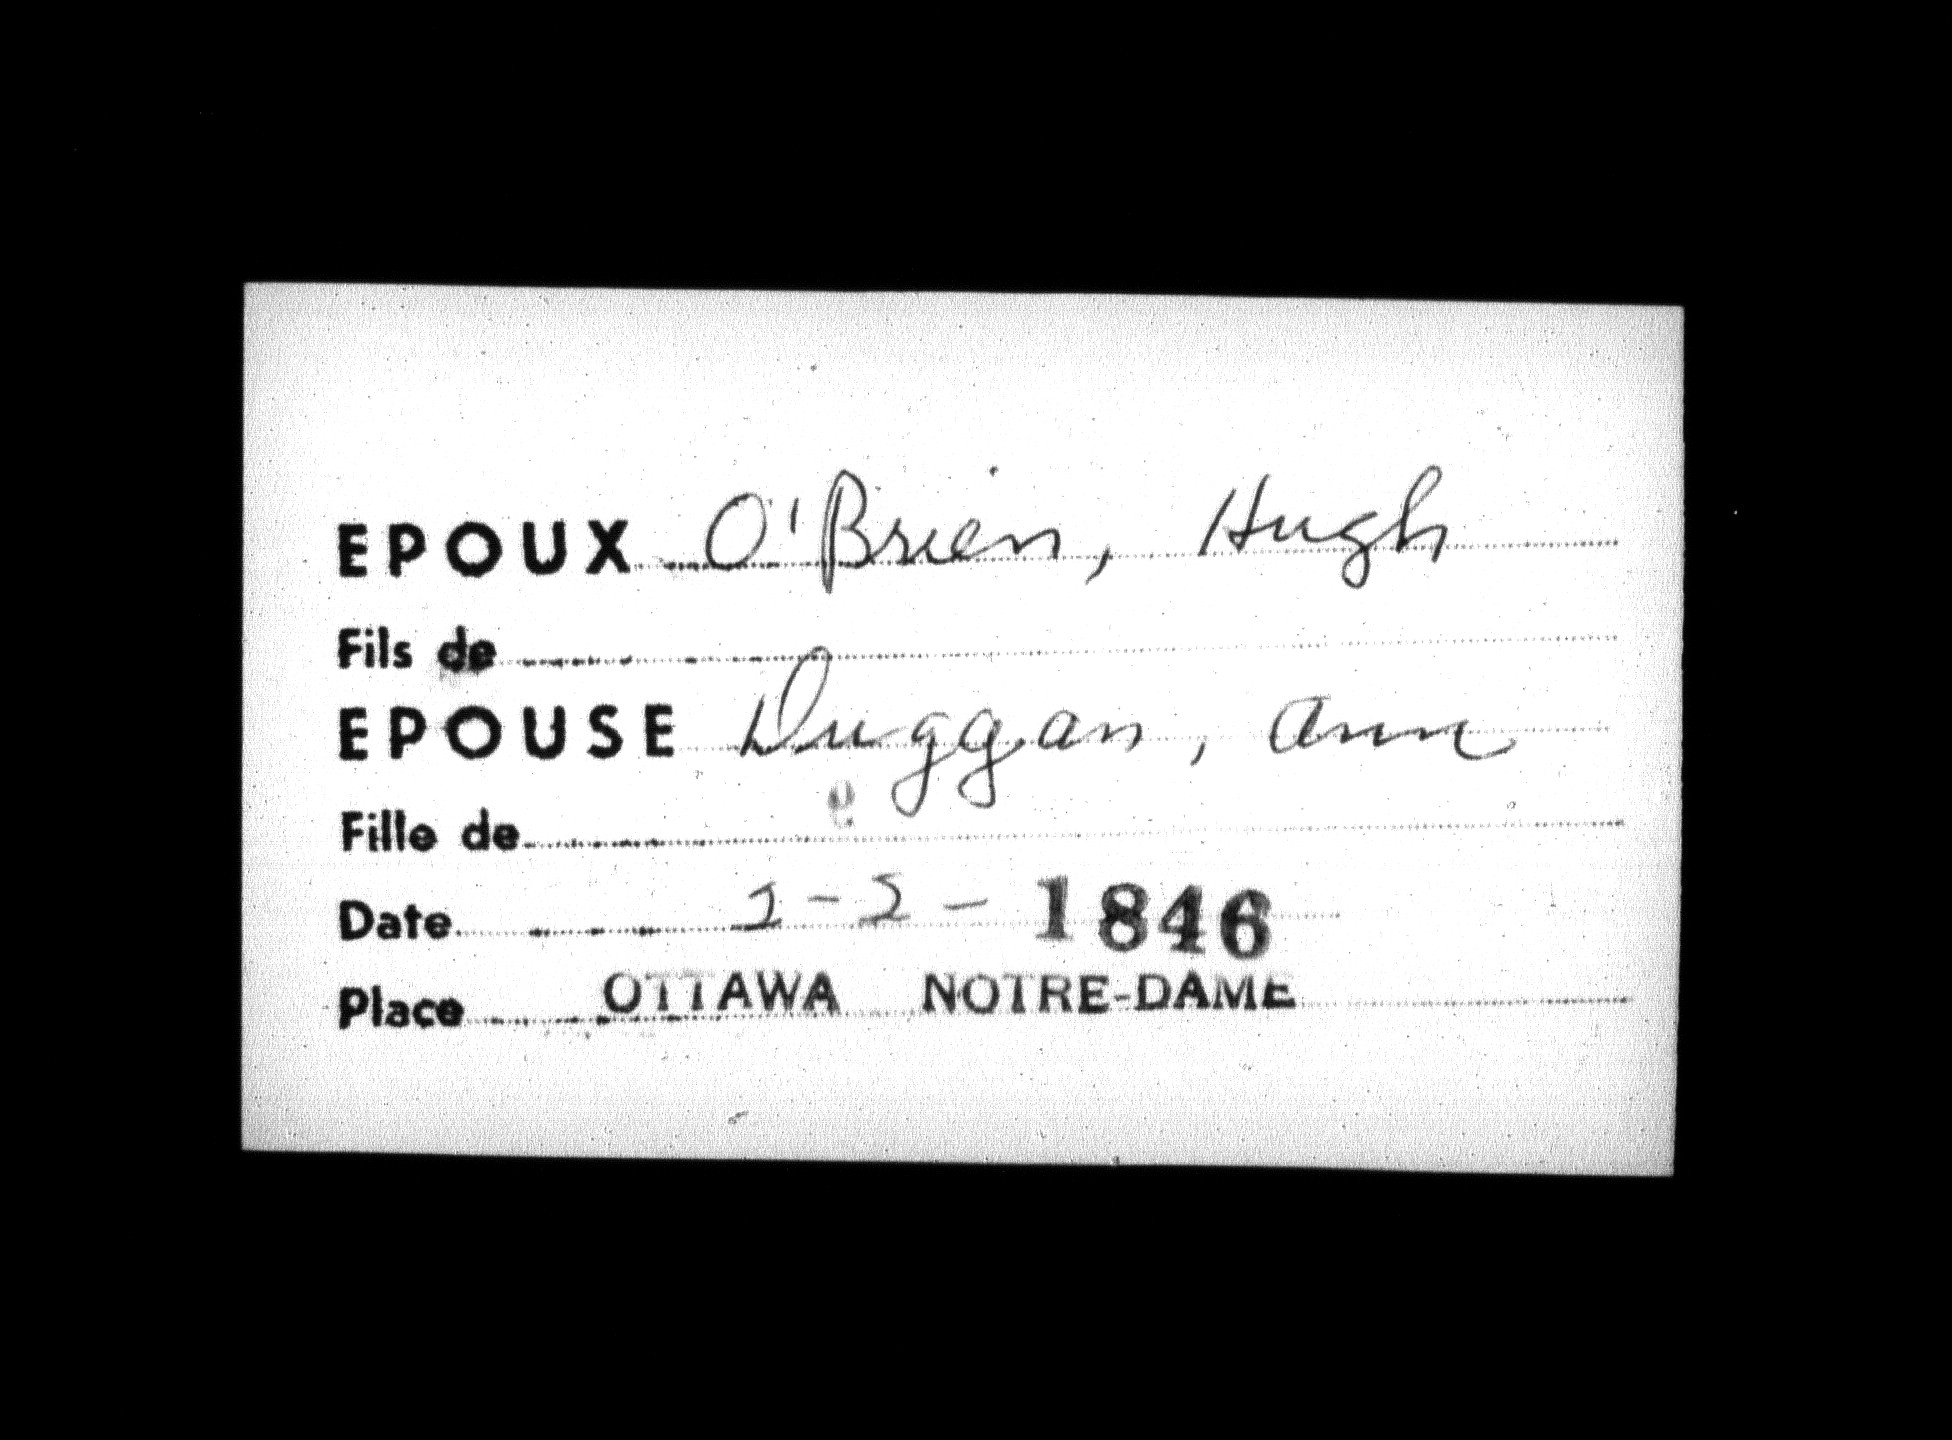 EPOUX O'Brien, Hugh
Fils de
EPOUSE Duggan, Ann
Fille de
Date 2-2-1846
Place OTTAWA NOTRE-DAME